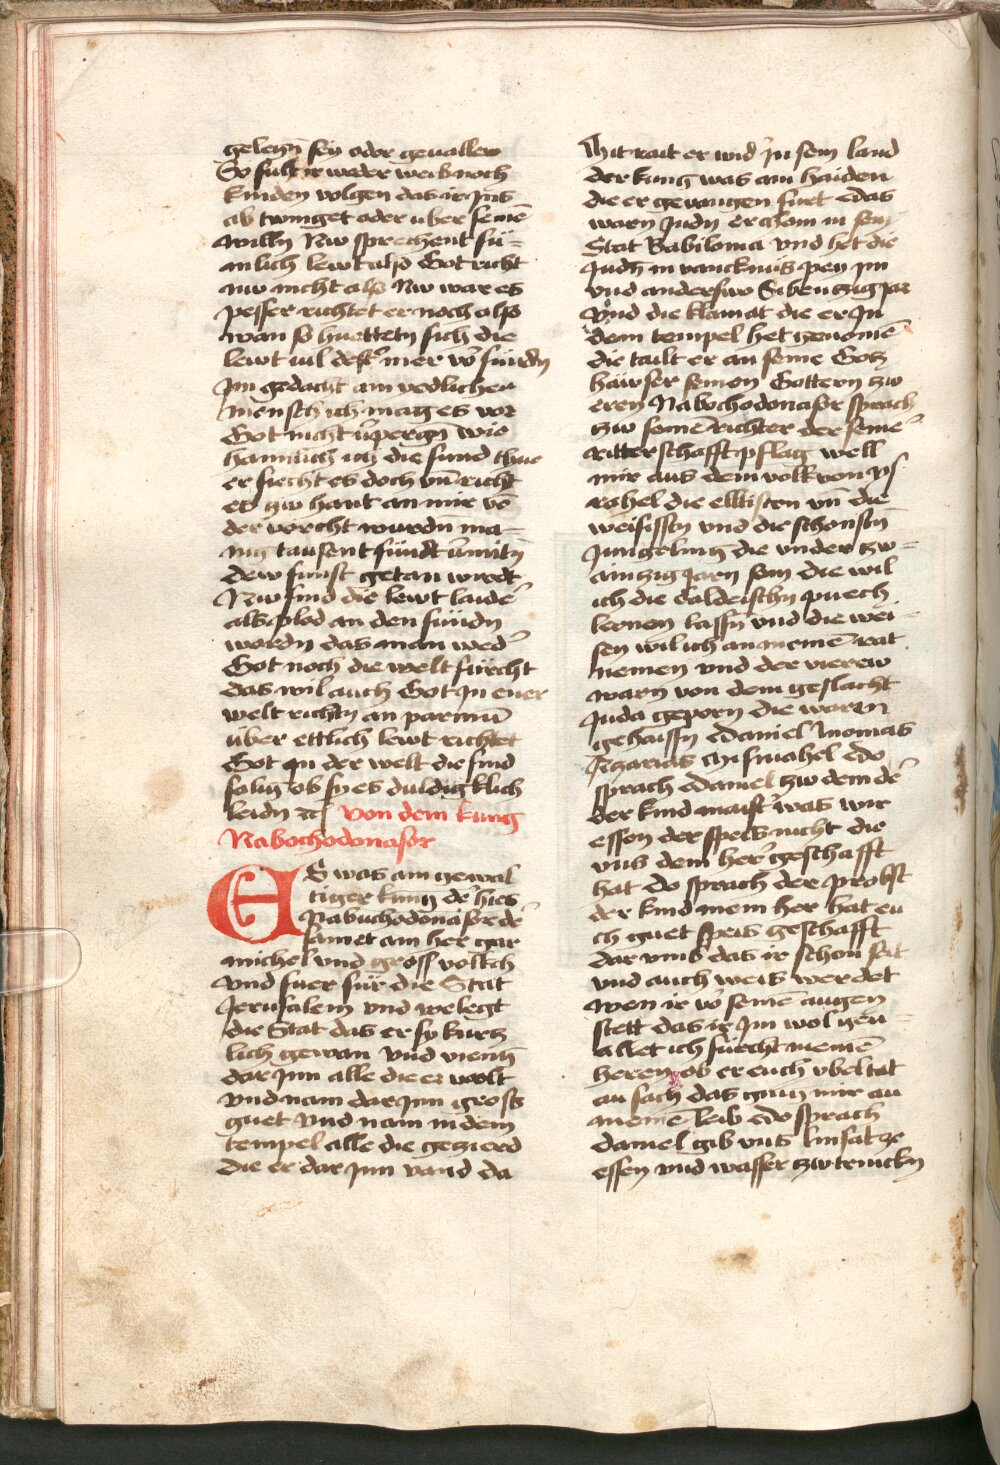 gelegn̄ sey oder geuallen
So sult ir weder weib noch
kinden volgen das ir Ins
ab twinget oder über seinē
willn̄ Nw sprechent sü=
mlich lewt also Got richt
nw nicht also Nw war es
pesser richtet er noch also
wan so huettetn̄ sich die
lewt uil dest̕ mer vō sündn̄
Im gedacht ain redlicher
mensch ich mag es vor
Got nicht v̕pergn̄ wie
hainlich ich die sund thue
er siecht es doch vn̄ richt
es zw hant an mir vō
der vorcht wurdn̄ ma=
nig tausent sündt v̕mitn̄
dew sunst getan wirdt
Nw sind die lewt laid̕e
als plod an den sündn̄
wordn̄ das man wed̕
Got noch die welt fürcht
das wil auch Got In ener
welt richtn̄ an parmū
über ettlich lewt richtet
Got In der welt die sind
salig ob sy es duldigklich
leidn̄ ꝛc von dem kung
Nabochodonasor
ES was ain gewal
tiger kunig d̕e hies
Nabuchodonasor d̕e
samet ain her gar
michel vnd gross volkch
vnd fuer für die Stat
Jerusalem vnd pelegt
die Stat das er sy kurtz
lich gewan vnd vieng
dar Inn alle die er wolt
vnd nam dar Inn gross
guet vnd nam in dem
tempel alle die gezierd
die er dar Inn vand da
Mit rait er wid̕ In sein land
der kung was ain haiden
die er gevangen füert das
warn Judn̄ er cham in sein
Stat Babilonia vnd het die
Judn̄ in vancknüs pey im
vnd anderswo Sibentzig jar
vnd die klainat die er In
dem tempel het genomē
die tailt er an seine Gotz
hawser seinen Gottern zw
eren Nabochodonasor sprach
zw seinē richter der seine̕
ritterschafft pflag well
mir aus dem volk von ys
rahel die elltisten vn̄ die
weisistn̄ vnd die schonstn̄
Jungeling die vnder zw=
aintzig jarn̄ sein die wil
ich die caldeischn̄ puech
lernen lassn̄ vnd die wei=
sen wil ich an meinē rat
nemen vnd der vierew
warn von dem geslacht
Juda geporn̄ die waren
gehaissn̄ Daniel Ananias
Azarias Misahel Do
sprach Daniel zw dem d̕e
der kind maist̕ was wir
essen der speis nicht die
vns dem her̕ geschafft
hat do sprach der probst
der kind mein her hat eu
ch guet speis geschafft
dar vmb das ir schon seit
vnd auch weis werdet
wen ir vō seinē augen
stett das ir Im wol geu=
allet ich fürcht meinē
heren ob er euch vbel tat
an sach das gieng mir an
meinē leib do sprach
daniel gib vns linsat ze
essen vnd wasser zw trinckn̄